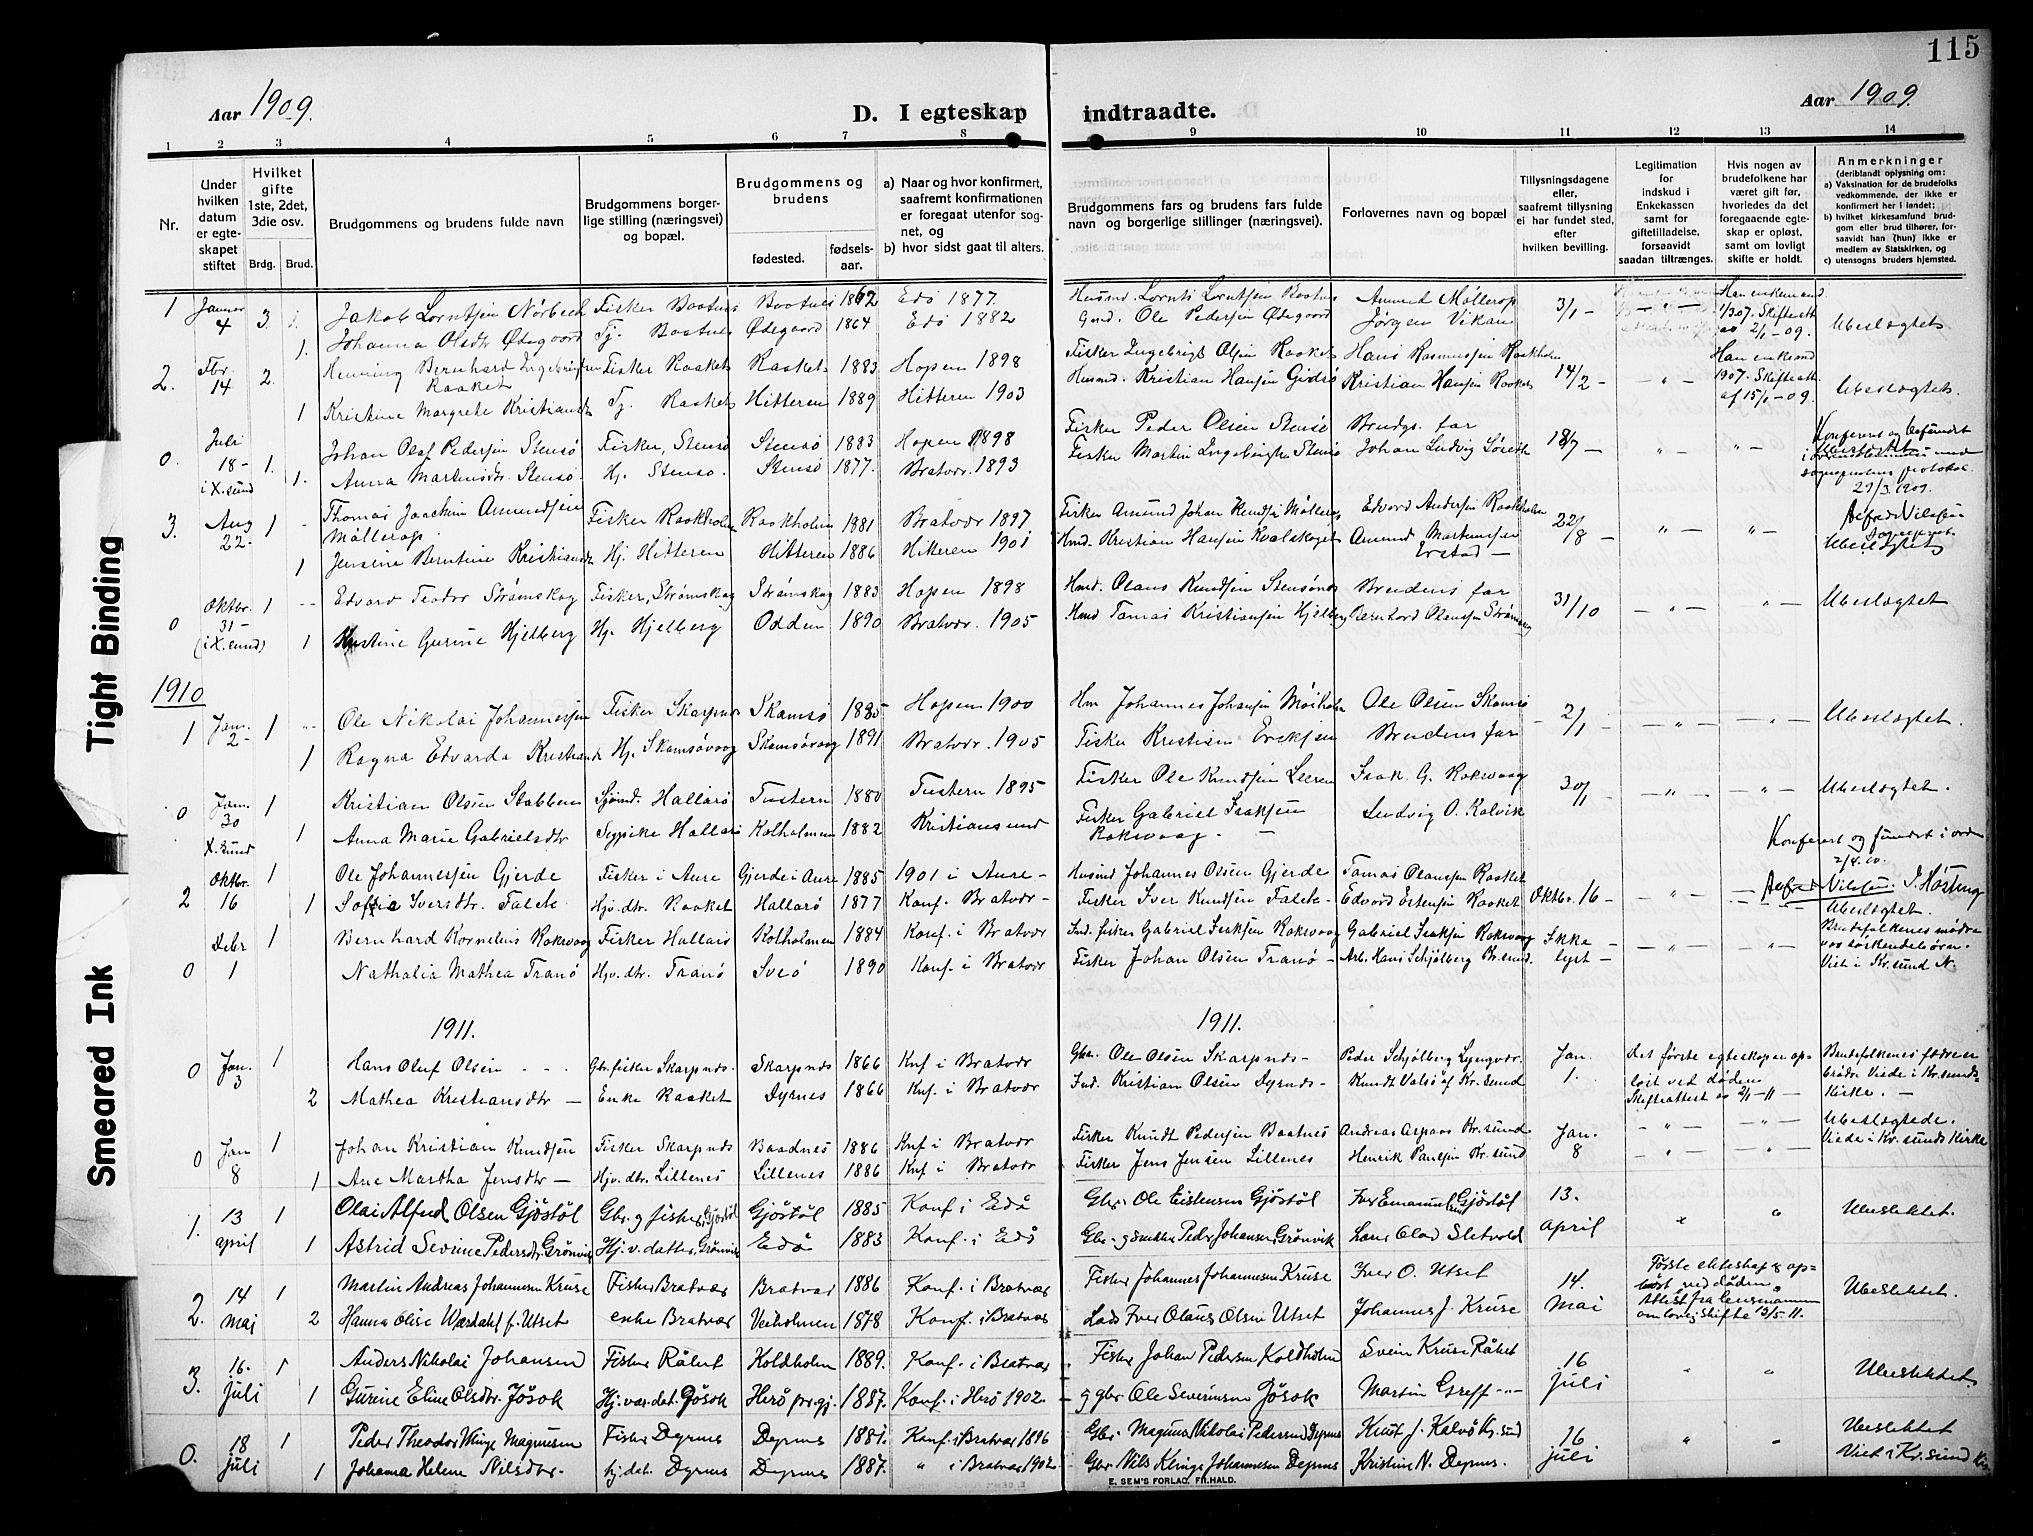 115
Aar 1909.
D. I egteskap indtraadte.
Aar 1909.
1 2 3 4 5 6 7 8 9 10 11 12 13 14
Nr.
Under hvilken datum er egteskapet stiftet
Hvilket gifte 1ste, 2det, 3die osv.
Brdg. Brud.
Brudgommens og brudens fulde navn
Brudgommens borgerlige stilling (næringsvei) og bopæl.
Brudgommens og brudens
fødested.
fødselsaar.
a) Naar og hvor konfirmert, saafremt konfirmationen er foregaat utenfor sognet, og
b) hvor sidst gaat til alters.
Brudgommens fars og brudens fars fulde navn og borgerlige stillinger (næringsvei).
Forlovernes navn og bopæl
Tillysningsdagene eller, saafremt tillysning ei har fundet sted, efter hvilken bevilling.
Legitimation for indskud i Enkekassen samt for giftetilladelse, forsaavidt saadan tiltrænges.
Hvis nogen av brudefolkene har været gift før, hvorledes da det foregaaende egteskap er opløst, samt om lovlig skifte er holdt.
Anmerkninger
(deriblandt oplysning om:
a) Vaksination for de brudefolks vedkommende, der ikke er konfirmert her i landet;
b) hvilket kirkesamfund brudgom eller brud tilhører, forsaavidt han (hun) ikke er medlem av Statskirken, og
c) utensogns bruders hjemsted.
1 Januar 4 3. Jakob Lorntsen Nørbech Fisker Baatnes Baatnes 1862 Edø 1877. Husmd. Lornts Lorntsen Baatnes Amund Møllerop 3/1 - Han enkemand
1. Johanna Olsdtr Ødegaard Tj. Baatnes Ødegaard 1864 Edø 1882 Gmd. Ole Pedersen Ødegaard Jørgen Vikan 1/307. Skifteatt. av 2/1 - 09. Ubeslægtet
2. Fbr. 14 2. Henning Bernhard Ingebrigtsen Raaket Fisker Raaket Raaket 1883 Hopen 1898 Fisker Ingebrigt Olsen Raaket Hans Rasmussen Raakholm 14/2 - - " - Han enkemd 1907. Skifteatt. af 15/1 - 09. Ubeslægtet.
1 Kristine Margrete Kristiansdt Tj. Raaket Hitteren 1889 Hitteren 1903 Husmd. Kristian Hansen Gidsø Kristian Hansen Raaket
0. Juli 18 - i X.sund 1. Johan Olaf Pedersen Stensø Fisker, Stensø Stensø 1883 Hopen 1898 Fisker Peder Olsen Stensø Brudgs. far 18/7 - - " - Konferert og befundet
1. Anna Martinsdtr. Stensø Hj. Stensø Stensø 1877. Bratvær. 1893 Fisker Martin Ingebrigtsen Stensø Johan Ludvig Søseth sogneprestens protokol. 29/3. 1909.
3. Aug 22 - 1 - Thomas Joachim Amundsen Møllerop. Fisker Raakholm Raakholm 1881 Bratvær 1897 Fisker Amund Johan Knudsen Møllerop Edvard Andersen Raakholm 22/8 - " - " - Alfred Nilssen
1 Jensine Berntine Kristiansdt Hj. Hitteren Hitteren 1886 Hitteren 1901 Hmd. Kristian Hansen Kvalskoget Amund Martinussen Erstad - Ubeslægtet
0 Oktbr. 31 - (i X.sund) 1 - Edvard Teodor Strømskag Fisker, Strømskag Strømskag 1883 Hopen 1898 Hmd. Olaus Knudsen Stensønes Brudens far 31/10 - " - " - Ubeslægtet
1 Kristine Gurine Hjelberg Hj. Hjelberg Odden 1890 Bratvær. 1905 Hmd Tomas Kristiansen Hjelberg Bernhard Olaussen Strømskag
1910
1 Jan. 2 - 1 - Ole Nikolai Johannessen Fisker Skarpnes Skamsø 1885 Hopen 1900 Hm Johannes Johansen Moiholm Ole Olsen Skamsø 2/1 - - " - - " - Ubeslægtet.
1 Ragna Edvarda Kristiansdt Hj. Skamsøvaag Skamsøvaag 1891 Bratvær. 1905 Fisker Kristian Eriksen Brudens far
0 Jan. 30 X.sund 1 Kristian Olsen Stabben Sjømd. Hallarø Tustern 1880 Tustern 1895 Fisker Ole Knudsen Leeren Isak. G. Rokvaag 30/1 - - " - - " - Ubeslægtet.
1 Anna Marie Gabrielsdtr Sypike Hallarø Kolholmen 1882 Kristiansund Fisker Gabriel Isaksen Rokvaag. - Ludvig O. Kalvik
Konferert og fundet i orden 2/4.10.
2 Oktbr. 16 1 Ole Johannessen Gjerde Fisker i Aure Gjerde i Aure 1885 1901 i Aure - Husmd Johannes Olsen Gjerde Tomas Olaussen Raaket Oktbr. 16 - " - - " - Alfred Nilssen. J. Høsting
1 Sofie Iversdtr. Falch - Hjv.dtr. Raaket Hallarø 1877 Konf. Bratvær - Fisker Iver Knudsen Falch - Edvard Estensen Raaket Ubeslægtet.
0 Debr 1 1 Bernhard Kornelius Rokvaag Fisker Hallarø Kolholmen 1884 Konf. i Bratvær Ind. fisker Gabriel Isaksen Rokvaag Gabriel Isaksen Rokvaag Ikke lyst - - " - " - Brudefolkenes mødre var søskendebørn.
Nathalia Mathea Tranø Hjv.dtr. Tranø Sveø 1890 Konf. i Bratvær Fisker Johan Olsen Tranø - Arb. Hans Schjølberg Kr.sund. Viet i Kr.sund N.
1911. 1911.
0 Jan. 3 1 Hans Oluf Olsen - - - Gbr. fisker Skarpnds. Skarpnds 1866 Knf i Bratvær Gbr. Ole Olsen Skarpnds - Peder Schjølberg Lyngvær. Jan. 1. Det første egteskap er opløst ved døden. Skifteattest av 2/1 - 11 - Brudefolkenes fædre er brødre Viede i Kr.sunds Kirke. -
2 Mathea Kristiansdtr - Enke Raaket Dyrnes 1866 Knf. i Bratvær Ind. Kristian Olsen Dyrnds - Knudt Valsø af Kr.sund
0 Jan 8 1 Johan Kristian Knudsen Fisker Skarpnds Baadnes 1886 Knf i Bratvær Fisker Knudt Pedersen Baatnes Andreas Aspaas Kr.sund Jan. 8 - " - - " - Ubeslægtede. Viede i Kr.sunds Kirke
1 Ane Martha Jensdtr - Hjv.dtr. Lillenes Lillenes 1886 Knf i Bratvær Fisker Jens Jensen Lillenes Henrik Paulsen Kr.sund
1. 13 april 1 Olai Alfred Olsen Gjøstøl Gbr. og fisker, Gjøstøl Gjøstøl 1885 Konf i Edø Gbr. Ole Eistensen Gjøstøl Iver Emanuelsen Gjøstøl 13. april " Ubeslektet.
1 Astrid Severine Pedersdtr. Grønvik Hj.v.datter, Grønvik Edø 1883 Konf. i Edø Gbr - og smed Peder Johansen Grønvik Lars Olad Sletvold
2. 14 mai 1 Martin Andreas Johannesen Kruse Fisker Bratvær Bratvær 1886 Konf. i Bratvær Fisker Johannes Johannesen Kruse Iver O. Utset 14. mai Første ekteskap opløst ved døden. Attest fra lensmannen om lovlig skifte 12/5. 11. Ubeslektet.
2 Hanna Olise Wærdahl f. Utset enke Bratvær Veiholmen 1878 Konf. i Bratvær Lods Iver Olaus Olsen Utset Johannes J. Kruse
3. 16. juli 1 Anders Nikolai Johansen Fisker Råket Koldholm 1889. Konf. i Bratvær Fisker Johan Pedersen Koldholm Svein Kruse Råket 16 juli " " Ubeslektet.
1 Gurine Eline Olsdtr. Jøsok Hj.vær.det. Jøsok Herø pr.gj. 1887. Konf. i Herø 1902. g gbr. Ole Severinsen Jøsok Martin Greff - " -
0. 18 juli 1 Peder Theodor Klinge Magnussen Fisker Dyrnes Dyrnes 1881. Konf. i Bratvær 1896 Gbr. Magnus Nikolai Pedersen Dyrnes Knut J. Kalvø Kr.sund 16 juli " " Ubeslektet
1 Johanna Helene Nilsdtr. hj.det. Dyrnes Dyrnes 1887. " i Bratvær 1902. Gbr. Nils Klinge Johannesen Dyrnes Kristine N. Dyrnes. Viet i Kr.sund
E. SEM'S FORLAG, FR.HALD.
Tight Binding
Smeared Ink